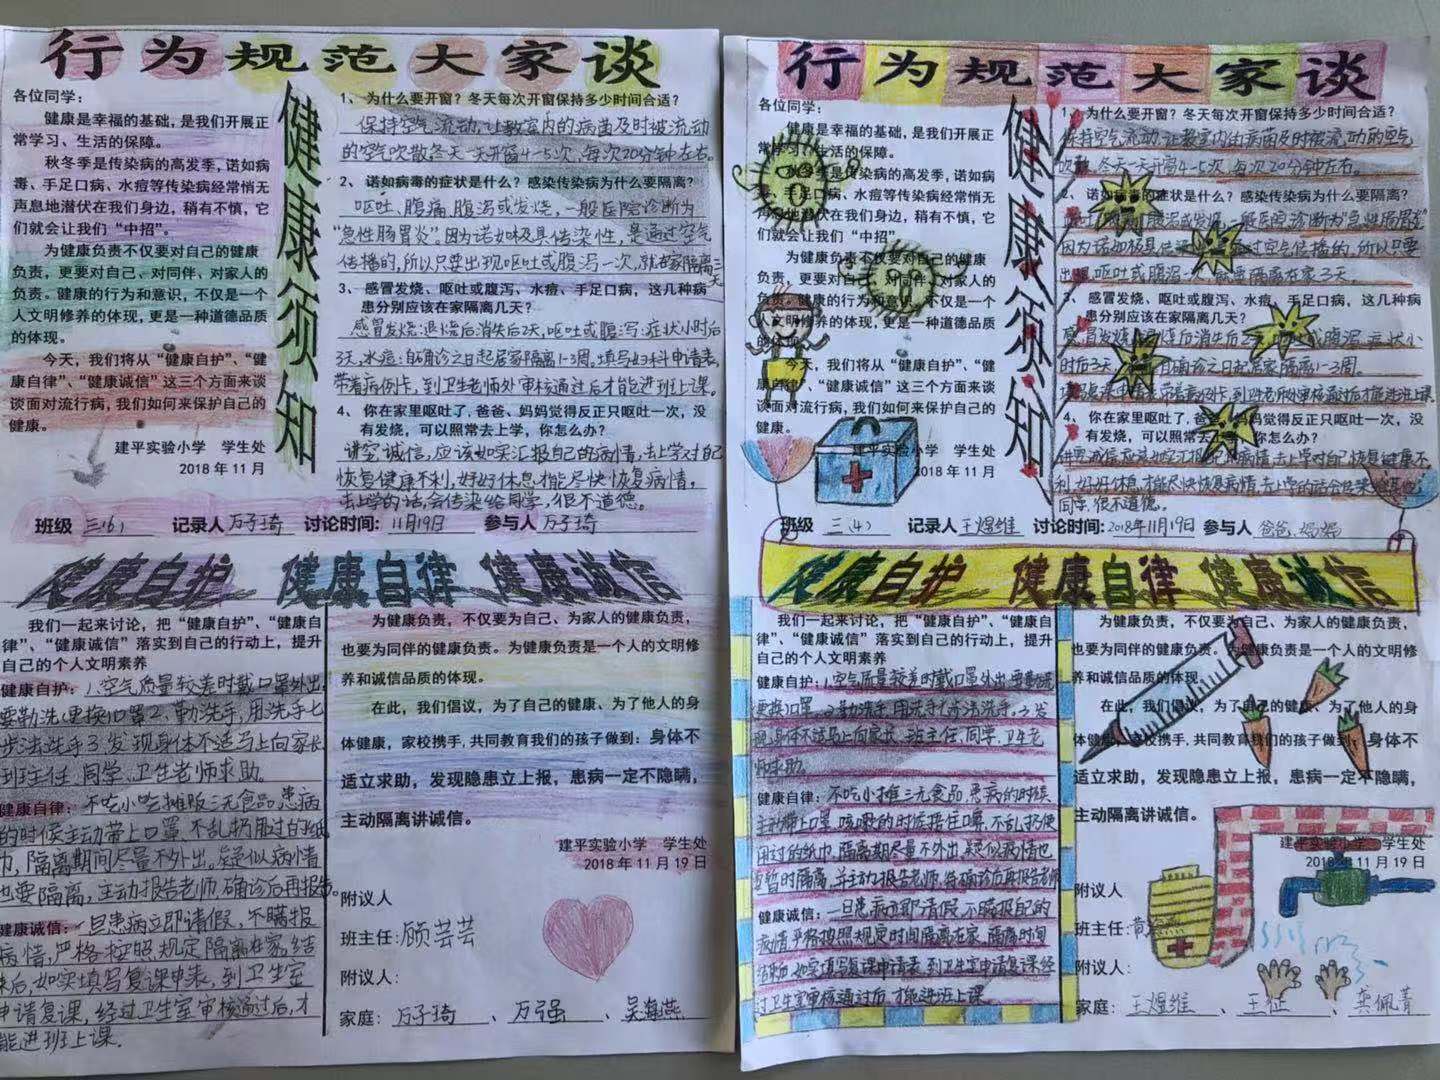 行为规范大家谈
各位同学：
健康是幸福的基础，是我们开展正
常学习、生活的保障。
秋冬季是传染病的高发季，诺如病
毒、手足口病、水痘等传染病经常悄无
声息地潜伏在我们身边，稍有不慎，它
们就会让我们“中招”。
为健康负责不仅要对自己的健康
负责，更要对自己、对同伴、对家人的
负责。健康的行为和意识，不仅是一个
人文明修养的体现，更是一种道德品质
的体现。
今天，我们将从“健康自护”、“健
康自律”、“健康诚信”这三个方面来谈
谈面对流行病，我们如何来保护自己的
健康。
建平实验小学 学生处
2018年11月
健康须知
1、 为什么要开窗？冬天每次开窗保持多少时间合适？
保持空气流动，让教室内的病菌及时被流动
的空气吹散，冬天一天开窗4-5次，每次20分钟左右。
2、 诺如病毒的症状是什么？感染传染病为什么要隔离？
呕吐、腹痛、腹泻或发烧，一般医院诊断为
“急性肠胃炎”。因为诺如极具传染性，是通过空气
传播的，所以只要出现呕吐或腹泻一次，就在家隔离三天
3、 感冒发烧、呕吐或腹泻、水痘、手足口病，这几种病
患分别应该在家隔离几天？
感冒发烧：退烧后消失后2天，呕吐或腹泻：症状小时后
3天，水痘：自确诊之日起居家隔离1-3周。填写好复课申请表，
带着病例卡，到卫生老师处审核通过后才能进班上课。
4、 你在家里呕吐了，爸爸、妈妈觉得反正只呕吐一次，没
有发烧，可以照常去上学，你怎么办？
讲究诚信，应该如实汇报自己的病情，去上学对自己
恢复健康不利，好好休息才能尽快恢复病情，
去上学的话，会传染给同学，很不道德。
班级 三(6) 记录人 万子琦 讨论时间：11月19日 参与人 万子琦
健康自护 健康自律 健康诚信
我们一起来讨论，把“健康自护”、“健康自
律”、“健康诚信”落实到自己的行动上，提升
自己的个人文明素养
健康自护：1.空气质量较差时戴口罩外出，
要勤洗（更换）口罩2、勤洗手，用洗手七
步法洗手3、发现身体不适马上向家长、
班主任、同学、卫生老师求助。
健康自律：不吃小吃摊贩三无食品，患病
的时候主动带上口罩，不乱扔用过的纸
巾，隔离期间尽量不外出。疑似病情
也要隔离，主动报告老师，确诊后再报告。
健康诚信：一旦患病立即请假，不瞒报
病情，严格按照规定隔离在家，结
束后，如实填写复课申表，到卫生室
申请复课，经过卫生室审核通过后，才
能进班上课.
为健康负责，不仅要为自己、为家人的健康负责，
也要为同伴的健康负责。为健康负责是一个人的文明修
养和诚信品质的体现。
在此，我们倡议，为了自己的健康、为了他人的身
体健康，家校携手，共同教育我们的孩子做到：身体不
适立求助，发现隐患立上报，患病一定不隐瞒，
主动隔离讲诚信。
建平实验小学 学生处
2018年11月19日
附议人
班主任：顾芸芸
附议人：
家庭：万子琦、万强、吴海燕
行为规范大家谈
各位同学：
健康是幸福的基础，是我们开展正
常学习、生活的保障。
秋冬季是传染病的高发季，诺如病
毒、手足口病、水痘等传染病经常悄无
声息地潜伏在我们身边，稍有不慎，它
们就会让我们“中招”。
为健康负责不仅要对自己的健康
负责，更要对自己、对同伴、对家人的
负责。健康的行为和意识，不仅是一个
人文明修养的体现，更是一种道德品质
的体现。
今天，我们将从“健康自护”、“健
康自律”、“健康诚信”这三个方面来谈
谈面对流行病，我们如何来保护自己的
健康。
建平实验小学 学生处
2018年11月
健康须知
1、 为什么要开窗？冬天每次开窗保持多少时间合适？
保持空气流动，让教室内的病菌及时被流动的空气
吹散，冬天一天开窗4-5次，每次20分钟左右。
2、 诺如病毒的症状是什么？感染传染病为什么要隔离？
腹泻或发烧，一般医院诊断为“急性肠胃炎”
因为诺如极具传染 过空气传播的，所以只要
出现呕吐或腹泻一 要隔离在家3天。
3、 感冒发烧、呕吐或腹泻、水痘、手足口病，这几种病
患分别应该在家隔离几天？
感冒发烧：退烧后消失后2天 或腹泻：症状小
时后3天 自确诊之日起居家隔离1-3周。
带着病例卡，到卫生老师处审核通过后才能进班上课
4、 你在家里呕吐了，爸爸、妈妈觉得反正只呕吐一次，没
有发烧，可以照常去上学，你怎么办？
讲究诚信，应该如实汇报自己的病情，去上学对自己恢复健康不
利，好好休息，才能尽快恢复病情，去上学的话会传染给其他
同学，很不道德。
班级 三(4) 记录人 王煜维 讨论时间：2018年11月19日 参与人 爸爸，妈妈
健康自护 健康自律 健康诚信
我们一起来讨论，把“健康自护”、“健康自
律”、“健康诚信”落实到自己的行动上，提升
自己的个人文明素养
健康自护：1.空气质量较差时戴口罩外出，要勤洗
更换口罩，2勤洗手，用洗手七步法洗手。3发
现身体不适马上向家长、班主任、同学、卫生老
师求助。
健康自律：不吃小摊三无食品，患病的时候
主动带上口罩，咳嗽的时候捂住口鼻，不乱扔使
用过的纸巾，隔离期尽量不外出，疑似病情也
要暂时隔离，并主动报告老师，待确诊后再报告老师
健康诚信：一旦患病立即请假，不瞒报自己的
病情，严格按照规定时间隔离在家，隔离时间
结束后，如实填写复课申请表，到卫生室申请复课，经
过卫生室审核通过后，才能进班上课。
为健康负责，不仅要为自己、为家人的健康负责，
也要为同伴的健康负责。为健康负责是一个人的文明修
养和诚信品质的体现。
在此，我们倡议，为了自己的健康、为了他人的身
体健康，家校携手，共同教育我们的孩子做到：身体不
适立求助，发现隐患立上报，患病一定不隐瞒，
主动隔离讲诚信。
建平实验小学 学生处
2018年11月19日
附议人
班主任：黄
附议人：
家庭：王煜维、王征、龚佩菁